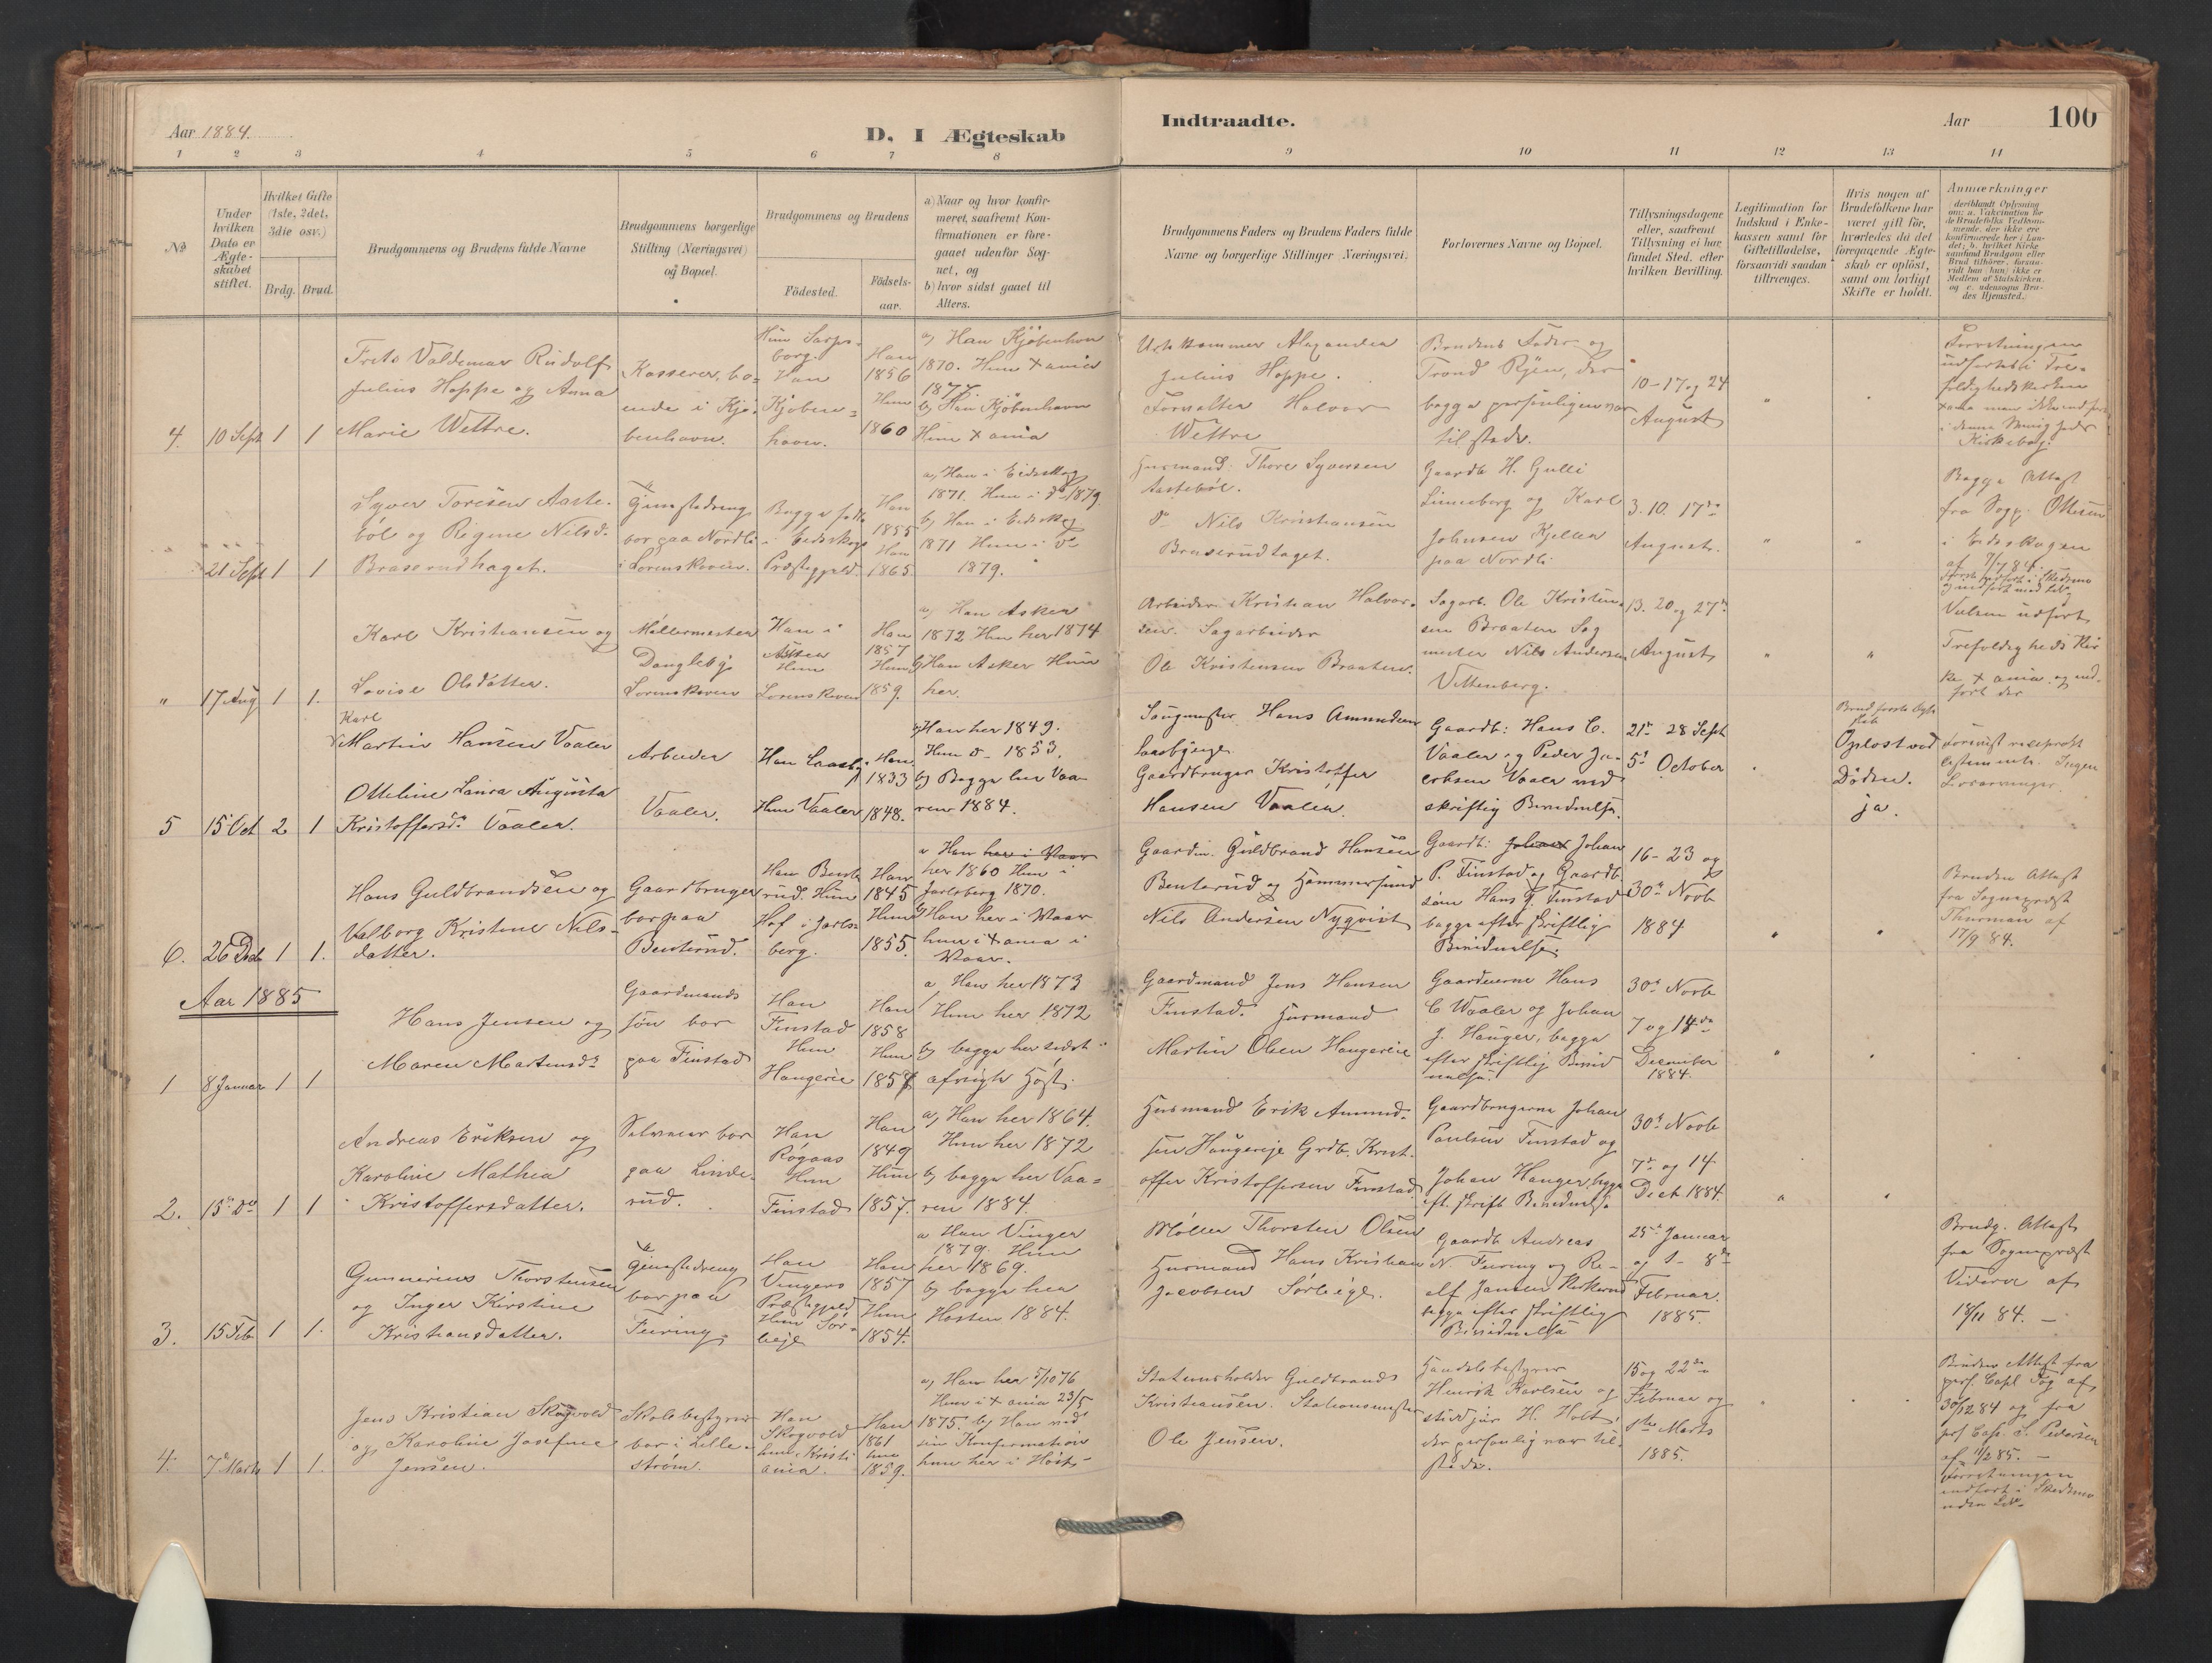 Aar 1884.
D. I Ægteskab
Indtraadte.
Aar
100
1 2 3 4 5 6 7 8 9 10 11 12 13 14
No
Under hvilken Dato er Ægte-skabet stiftet.
Hvilket Gifte (1ste, 2det, 3die osv.)
Brdg. Brud.
Brudgommens og Brudens fulde Navne
Brudgommens borgerlige Stilling (Næringsvei) og Bopæl.
Brudgommens og Brudens
Födested.
Födsels-aar.
a) Naar og hvor konfir-
meret, saafremt Kon-
firmationen er fore-
gaaet udenfor Sog-
net, og
b) hvor sidst gaaet til
Alters.
Brudgommens Faders og Brudens Faders fulde
Navne og borgerlige Stillinger (Næringsvei).
Forlovernes Navne og Bopæl.
Tillysningsdagene
eller, saafremt
Tillysning ei har
fundet Sted, efter
hvilken Bevilling.
Legitimation for
Indskud i Enke-
kassen samt for
Giftetilladelse,
forsaavidt saadan
tiltrænges.
Hvis nogen af
Brudefolkene har
været gift för,
hvorledes da det
foregaaende Ægte-
skab er oplöst,
samt om lovligt
Skifte er holdt.
Anmærkninger
deriblandt Oplysning
om: a. Vakcination for
de Brudefolks Vedkom-
mende, der ikke ere
konfirmerede her i Lan-
det; b. hvilket Kirke
samfund Brudgom eller
Brud tilhörer, forsaa-
vidt han (hun) ikke er
Medlem af Statskirken,
og c. udensogns Bru-
des Hjemsted.
4. 10 Sept 1 1
Frits Valdemar Rudolf
Julius Hoppe og Anna
Marie Wettre.
Kasserer, bo-
ende i Kjö-
benhavn.
Hun Sarps-
borg.
Han
Kjöben-
havn.
Han
1856
Hun
1860
a) Han Kjöbenhavn
1870. Hun Xania
1877
b) Han Kjöbenhavn
Hun Xania
Alexander
Julius Hoppe.
Forvalter Halvor
Wettre
Brudens Fader og
Trond Ryen, der
begge personligen var
tilstede.
10-17 og 24
August
Forretningen
udfortes i Tre-
foldighedskirken
Xania men ikke indfört
i denne Menigheds
Kirkebog.
21 Sept 1 1
Syver Toresen Aaste-
böl og Regine Nilsd.
Braserudhaget.
Gjæstedreng
bor paa Nordli
i Lörenskoven.
Begge födte
i Eidskogs
Præstegjeld.
Han
1855
Hun
1865.
a) Han i Eidskog
1871. Hun i do 1879.
b) Han i Eidskog
1871 Hun i do
1879.
Husmand Thore Syversen
Aasteböl.
do Nils Kristiansen
Braserudhaget.
Gaardb H. Gulli
Linneborg og Karl
Johnsen Kjellen
paa Nordli
3. 10. 17de
August.
Begge Attest
fra Sogp. Ottesen
i Eidskogen
af 7/7 84.
" 17 Aug 1 1.
Karl Kristiansen og
Lovise Olsdatter.
Möllermester
Dangleby
Lörenskoven
Han i
Asker
Hun
Lörenskoven
Han
1857
Hun
1859.
a) Han Asker
1872 Hun her 1874
b) Han Asker Hun
her.
Arbeider Kristian Halvor-
sen. Sagarbeider
Ole Kristensen Braaten.
Sagarb. Ole Kristen-
sen Braaten Sag
mester Nils Andersen
Vittenberg.
13. 20 og 27de
August
Vielsen udfört
Trefoldigheds Kir
ke Xania og ind-
fört der
5 15 Oct 2 1
Karl
Martin Hansen Vaaler
Otteline Laura Augusta
Kristoffersdr Vaaler.
Arbeider
Vaaler.
Han Laasby
Hun Vaaler
Han
1833
1848.
a) Han her 1849.
Hun do 1853.
b) Begge her Vaa-
ren 1884.
Saugmester Hans Amundsen
Gaardbruger Kristoffer
Hansen Vaaler.
Gaardb: Hans C.
Vaaler og Peder Ja-
cobsen Vaaler med
skriftlig Bevidnelse.
21de 28 Sept
5te October
Oplöst ved
Döden.
ja.
6. 26 Dec 1 1.
Hans Guldbrandsen og
Valborg Kristine Nils-
datter.
Gaardbruger
bor paa
Benterud.
Han Bente
rud. Hun
Hof i Jarls-
berg.
Han
1845
Hun
1855.
a Han her i Vaar
her 1860 Hun i
Jarlsberg 1870.
b) Han her i Vaar
hun i Xania i
Vaar.
Gaardm. Guldbrand Hansen
Benterud og
Nils Andersen Nyqvist
Gaardb: Johan Johan
P. Finstad og Gaardb.
søn Hans G. Finstad
begge efter skriftlig
Bevidnelse.
16-23 og
30te Novb
1884
Bruden Attest
fra Sogneprest
Thurman af
17/9 84.
Aar 1885
1 8 Januar 1 1
Hans Jensen og
Maren Martinsdr
Gaardmands
sön bor
paa Finstad
Han
Finstad
Hun
Haugerie
Han
1858
Hun
1857
a, Han her 1873
Hun her 1872
b) begge her sidst
afvigte Höst.
Gaardmand Jens Hansen
Finstad. Husmand
Martin Olsen Haugereie
Gaardeierne Hans
C Waaler og Johan
J. Hauger, begge
efter skriftlig Bevid
nelse.
30te Novb
7 og 14de
December
1884.
2. 15de do 1 1
Andreas Eriksen og
Karoline Mathea
Kristoffersdatter.
Selveier bor
paa Linde-
rud.
Han
Rögaas
Hun
Finstad
Han
1849
Hun
1857.
a) Han her 1864.
Hun her 1872
b) begge her Vaa-
ren 1884.
Husmand Erik Amund-
sen Haugereje Grdb. Krist-
offer Kristoffersen Finstad
Gaardbrugerne Johan
Paulsen Finstad og
Johan Hauger, begge
eft. skrift Bevidnelse
30te Novb
7de og 14
Decb. 1884.
3. 15 Feb 1 1.
Gunnerius Thorstensen
og Inger Kirstine
Kristiansdatter.
Gjæstedreng
bor paa
Feiring.
Han
Vingers
Præstegjeld
Hun Sör-
leje
Han
1857
Hun
1854.
a Han Vinger
1879. Hun
her 1869.
b) begge her
Hosten 1884.
Möller Thorsten Olsen
Husmand Hans Kristian
Jacobsen Sörleige.
Gaardb Andreas
N. Feiring og Re-
elf Jansen
begge efter skriftlig
Bevidnelse
25de Januar
og 1- 8de
Februar.
1885.
Brudg. Attest
fra Sogneprest
Videroe af
18/11 84.
4. 7de Marts 1 1.
Jens Kristian Skogvold
og Karoline Josefine
Jensen.
Skolebestyrer
bor i Lille-
ström.
Han
Skogvold
hun Kristi
ania.
Han
1861
hun
1859.
a) Han her 5/10 76
Hun i Xania 23/5
1875. b) Han ved
sin Konfirmation
hun her i Höst
Stationsholder Guldbrand
Kristiansen. Stationsmester
Ole Jensen.
Handelsbestyrer
Henrik Karlsen og
stud jur H. Holt,
der personlig var til-
stede.
15 og 22de
Februar og
Marts
1885.
Brudens Attest fra
pers. Capl Fog af
30/12 84 og fra
pers Cap. S. Pedersen
af 11/2 85.
Forretningen
indfört i Skedsmo